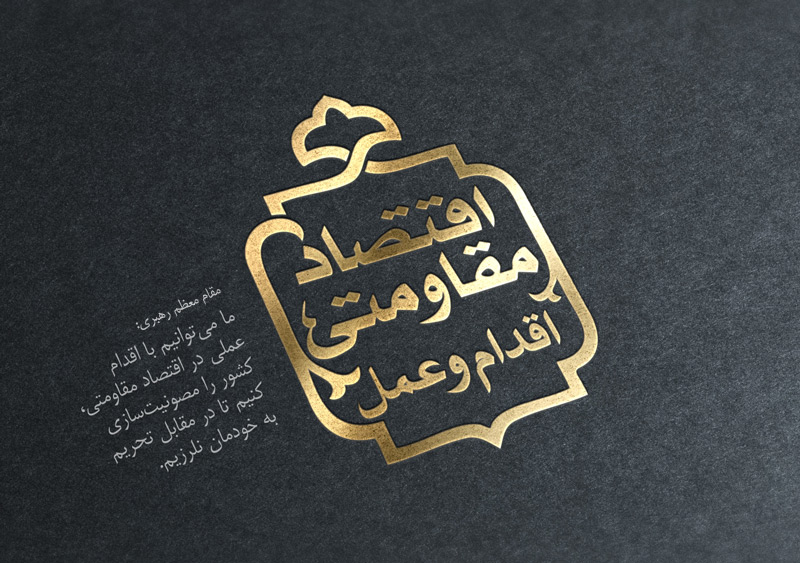 اقتصاد
مقاومتی
اقدام و عمل
مقام معظم رهبری:
ما می‌توانیم با اقدام
عملی در اقتصاد مقاومتی،
کشور را مصونیت‌سازی
کنیم تا در مقابل تحریم
به خودمان نلرزیم.